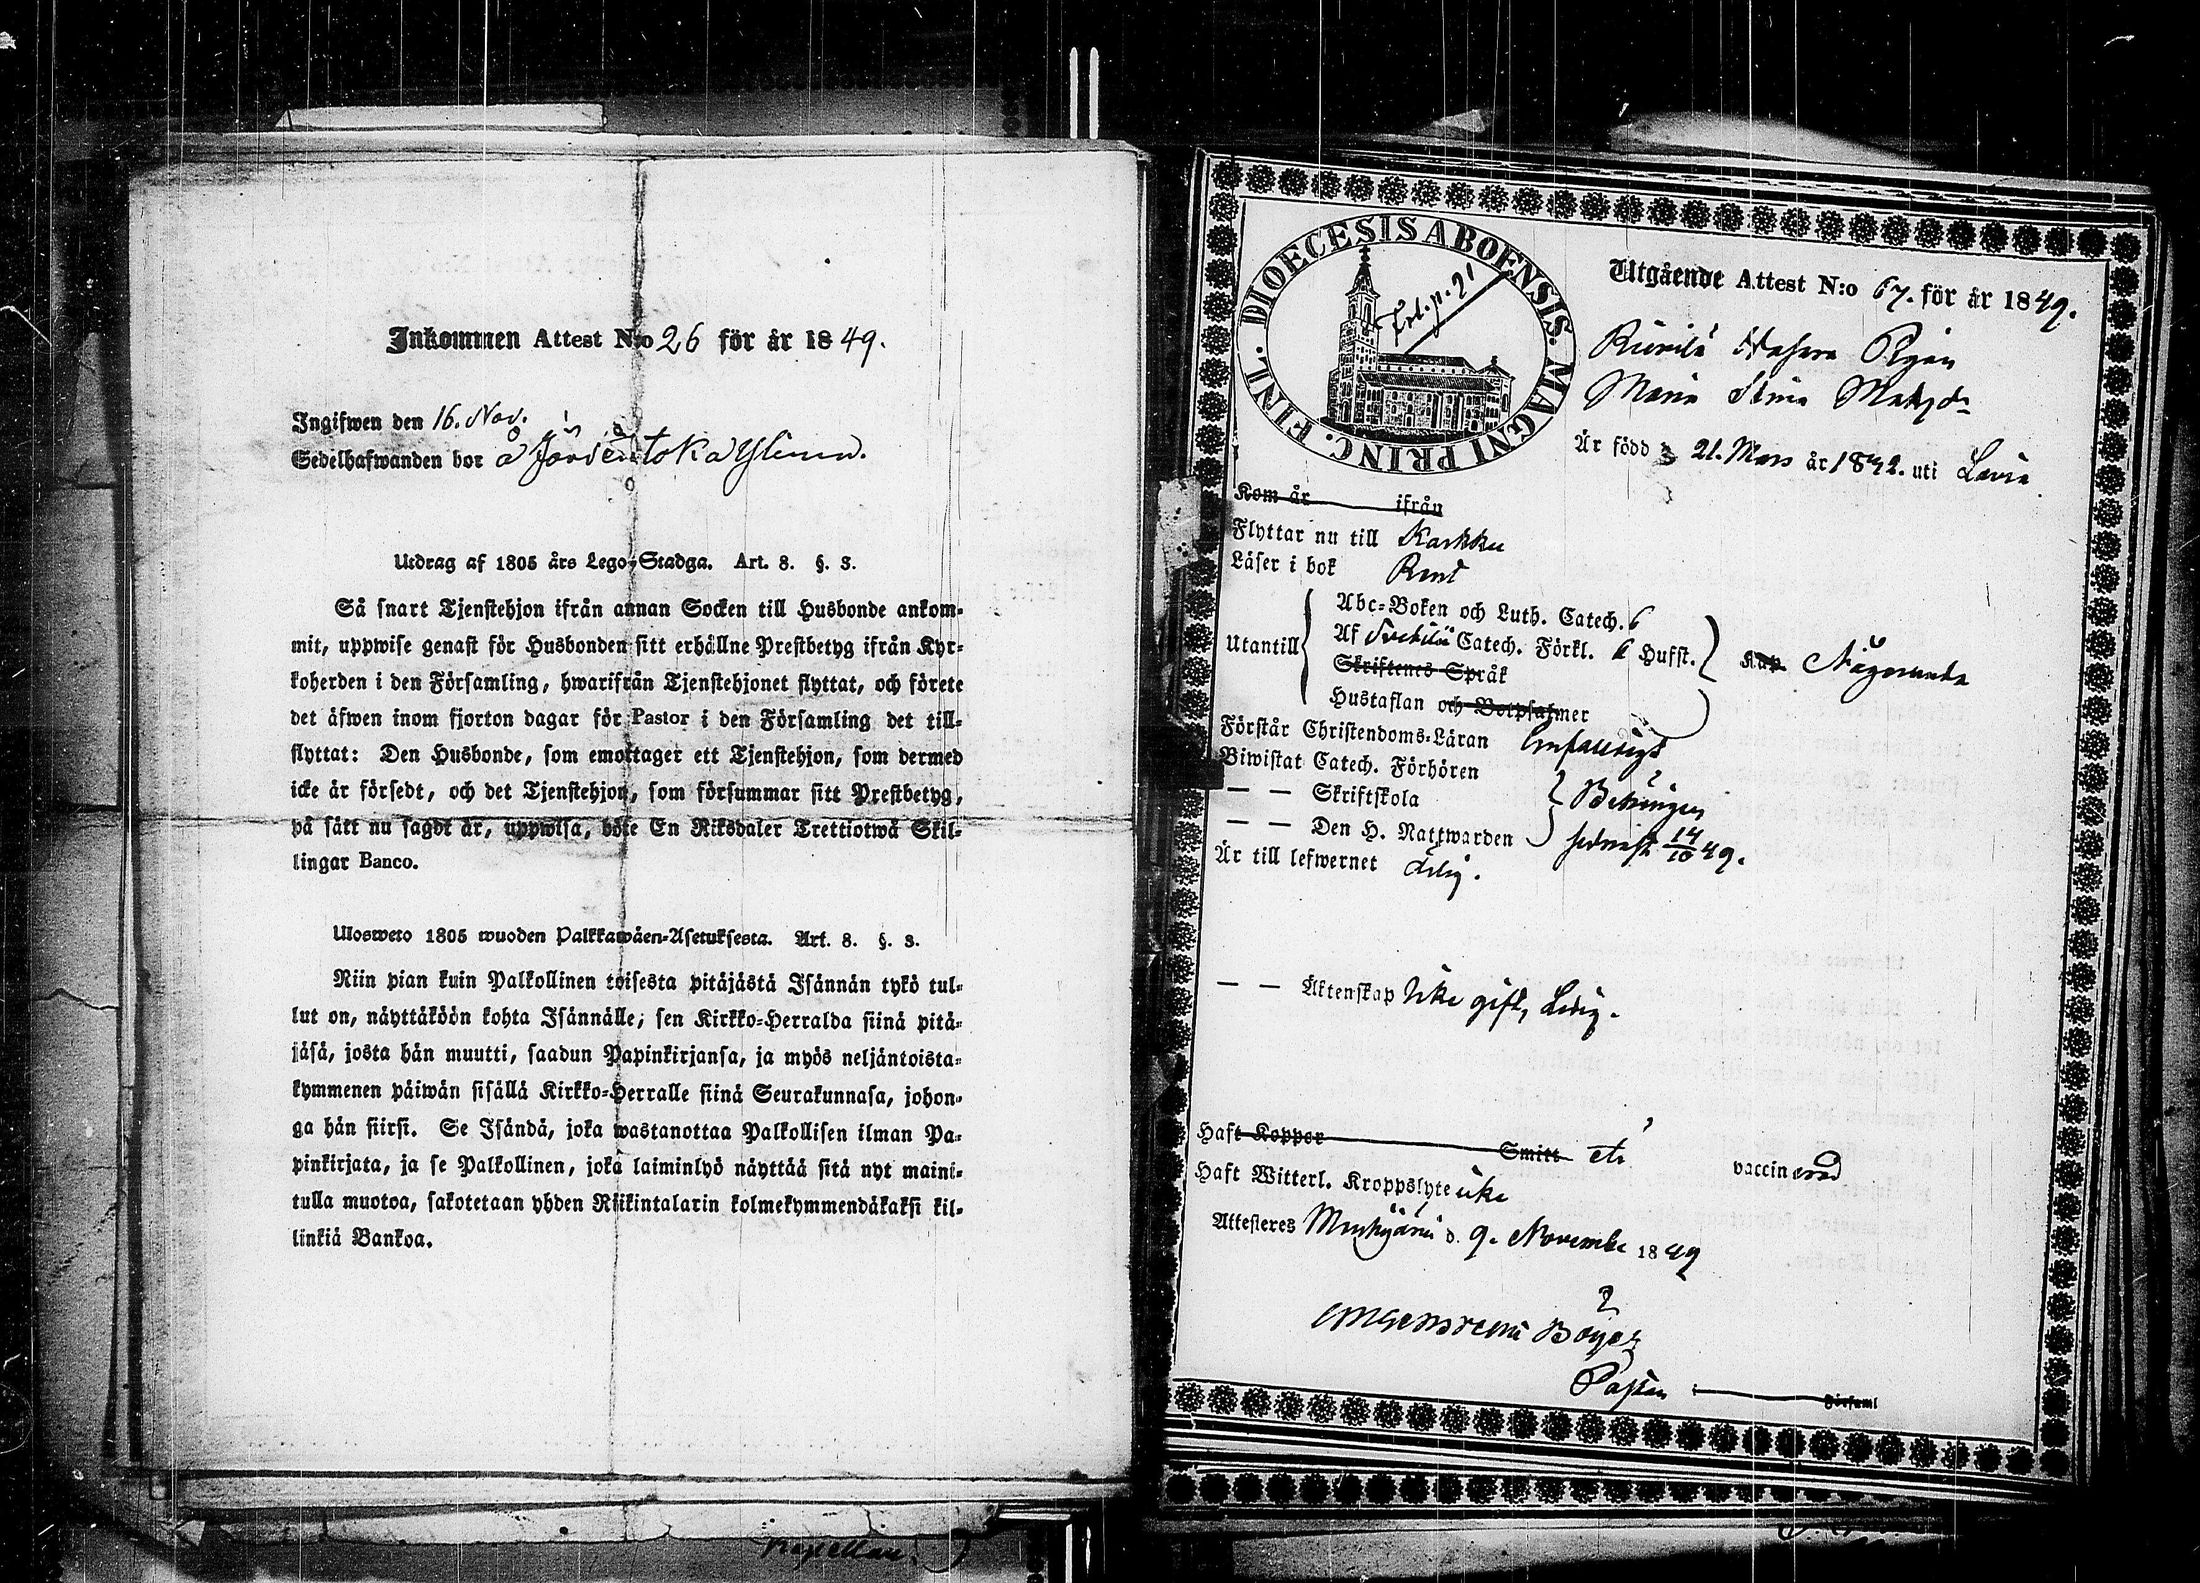 Inkommen Attest N:o 26 för år 1849.
Ingifwen den 16. Nov.
Sedelhafwanden bor å
Utdrag af 1805 års Lego-Stadga. Art. 8. §. 3.
Så snart Tjenstehjon ifrån annan Socken till Husbonde ankom-
mit, uppwise genast för Husbonden sitt erhållne Prestbetyg ifrån Kyr-
koherden i den Församling, hwarifrån Tjenstehjonet flyttat, och förete
det äfwen inom fjorton dagar för Pastor i den Församling det till-
flyttat: Den Husbonde, som emottager ett Tjenstehjon, som dermed
icke är försedt, och det Tjenstehjon, som försummar sitt Prestbetyg,
på sätt nu sagdt är, uppwisa, böte En Riksdaler Trettiotwå Skil-
lingar Banco.
Ulosweto 1805 wuoden Palkkawäen-Asetuksesta. Art. 8. §. 3.
Niin pian kuin Palkollinen toisesta pitäjästä Isännän tykö tul-
lut on, näyttäköön kohta Isännälle, sen Kirkko-Herralda siinä pitä-
jäsä, josta hän muutti, saadun Papinkirjansa, ja myös neljäntoista-
kymmenen päiwän sisällä Kirkko-Herralle siinä Seurakunnasa, johon-
ga hän siirsi. Se Isändä, joka wastanottaa Palkollisen ilman Pa-
pinkirjata, ja se Palkollinen, joka laiminlyö näyttää sitä nyt maini-
tulla muotoa, sakotetaan yhden Riikintalarin kolmekymmendäkaksi kil-
linkiä Bankoa.
DIOECESIS ABOENSIS. MAGNI PRINC. FINL.
Utgående Attest N:o 67. för år 1849.
Maria Stina
Är född d. 21. Mars år 1832. uti Lavia
Kom år ifrån
Flyttar nu till Karkku
Läser i bok Rent
Utantill
Abc-Boken och Luth. Catech. 6
Af Svebilii Catech. Förkl. 6 Hufst.
Kap. Någorunda
Skriftenes Språk
Hustaflan och Botpsalmer
Förstår Christendoms-Läran Enfaldigt
Biwistat Catech. Förhören
— — Skriftskola
— — Den H. Nattwarden
Behörigen
sednast 14/10 49.
Är till lefwernet ärlig.
— — Äktenskap icke gift, Ledig.
Haft Koppor Smitt etc vaccinerad
Haft Witterl. Kroppslyte icke
Attesteres Mouhijärvi d. 9. November 1849
Pastor i Församl
Kapellan.